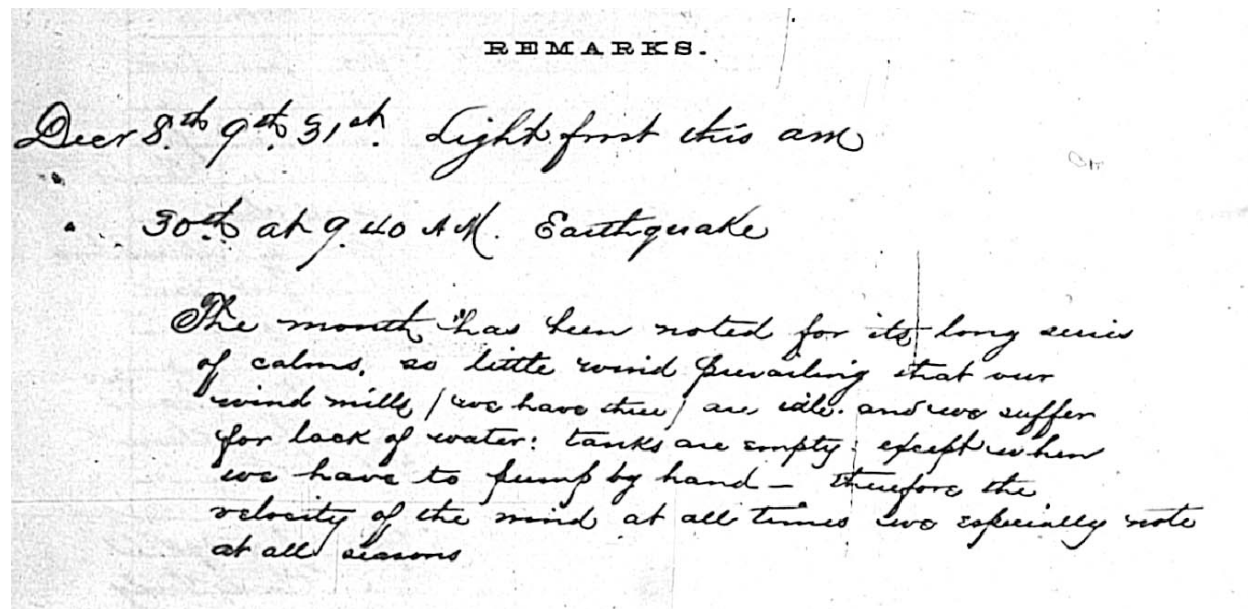 REMARKS.
Decr 8th 9th 31st. Light frost this am
" 30th at 9.40 AM. Earthquake
The month has been noted for its long series
of calms. so little wind prevailing that our
wind mills (we have three) are idle. and we suffer
for lack of water: tanks are empty: except when
we have to pump by hand — therefore the
velocity of the wind at all times we especially note
at all seasons